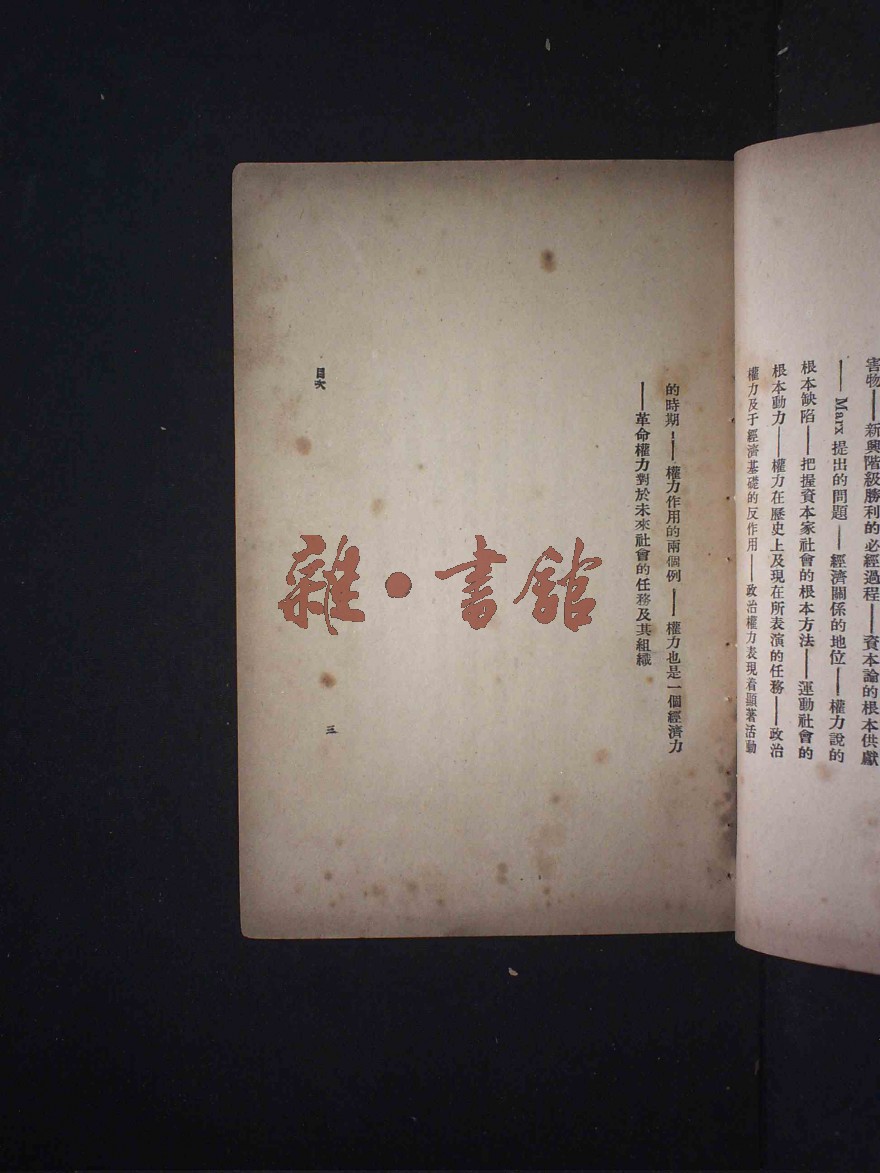 害物——新興階級勝利的必經過程——資本論的根本供獻
—— Marx 提出的問題——經濟關係的地位——權力說的
根本缺陷——把握資本家社會的根本方法——運動社會的
根本動力——權力在歷史上及現在所表演的任務——政治
權力及于經濟基礎的反作用——政治權力表現着顯著活動
的時期——權力作用的兩個例——權力也是一個經濟力
——革命權力對於未來社會的任務及其組織
目次
三
雜·書館